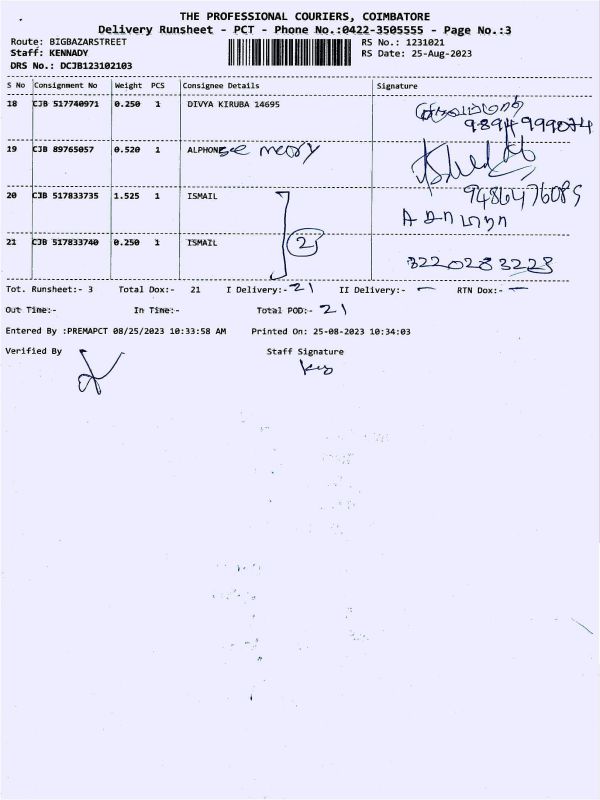 THE PROFESSIONAL COURIERS, COIMBATORE
Delivery Runsheet - PCT - Phone No.:0422-3505555 - Page No.:3
Route: BIGBAZARSTREET RS No.: 1231021
Staff: KENNADY RS Date: 25-Aug-2023
DRS No.: DCJB123102103
S No Consignment No Weight PCS Consignee Details Signature
18 CJB 517740971 0.250 1 DIVYA KIRUBA 14695
9894999074
19 CJB 89765057 0.520 1 ALPHONSE meory
9486476085
20 CJB 517833735 1.525 1 ISMAIL
2
21 CJB 517833740 0.250 1 ISMAIL
3220283228
Tot. Runsheet:- 3 Total Dox:- 21 I Delivery:- 21 II Delivery:- - RTN Dox:- -
Out Time:- In Time:- Total POD:- 21
Entered By :PREMAPCT 08/25/2023 10:33:58 AM Printed On: 25-08-2023 10:34:03
Verified By Staff Signature